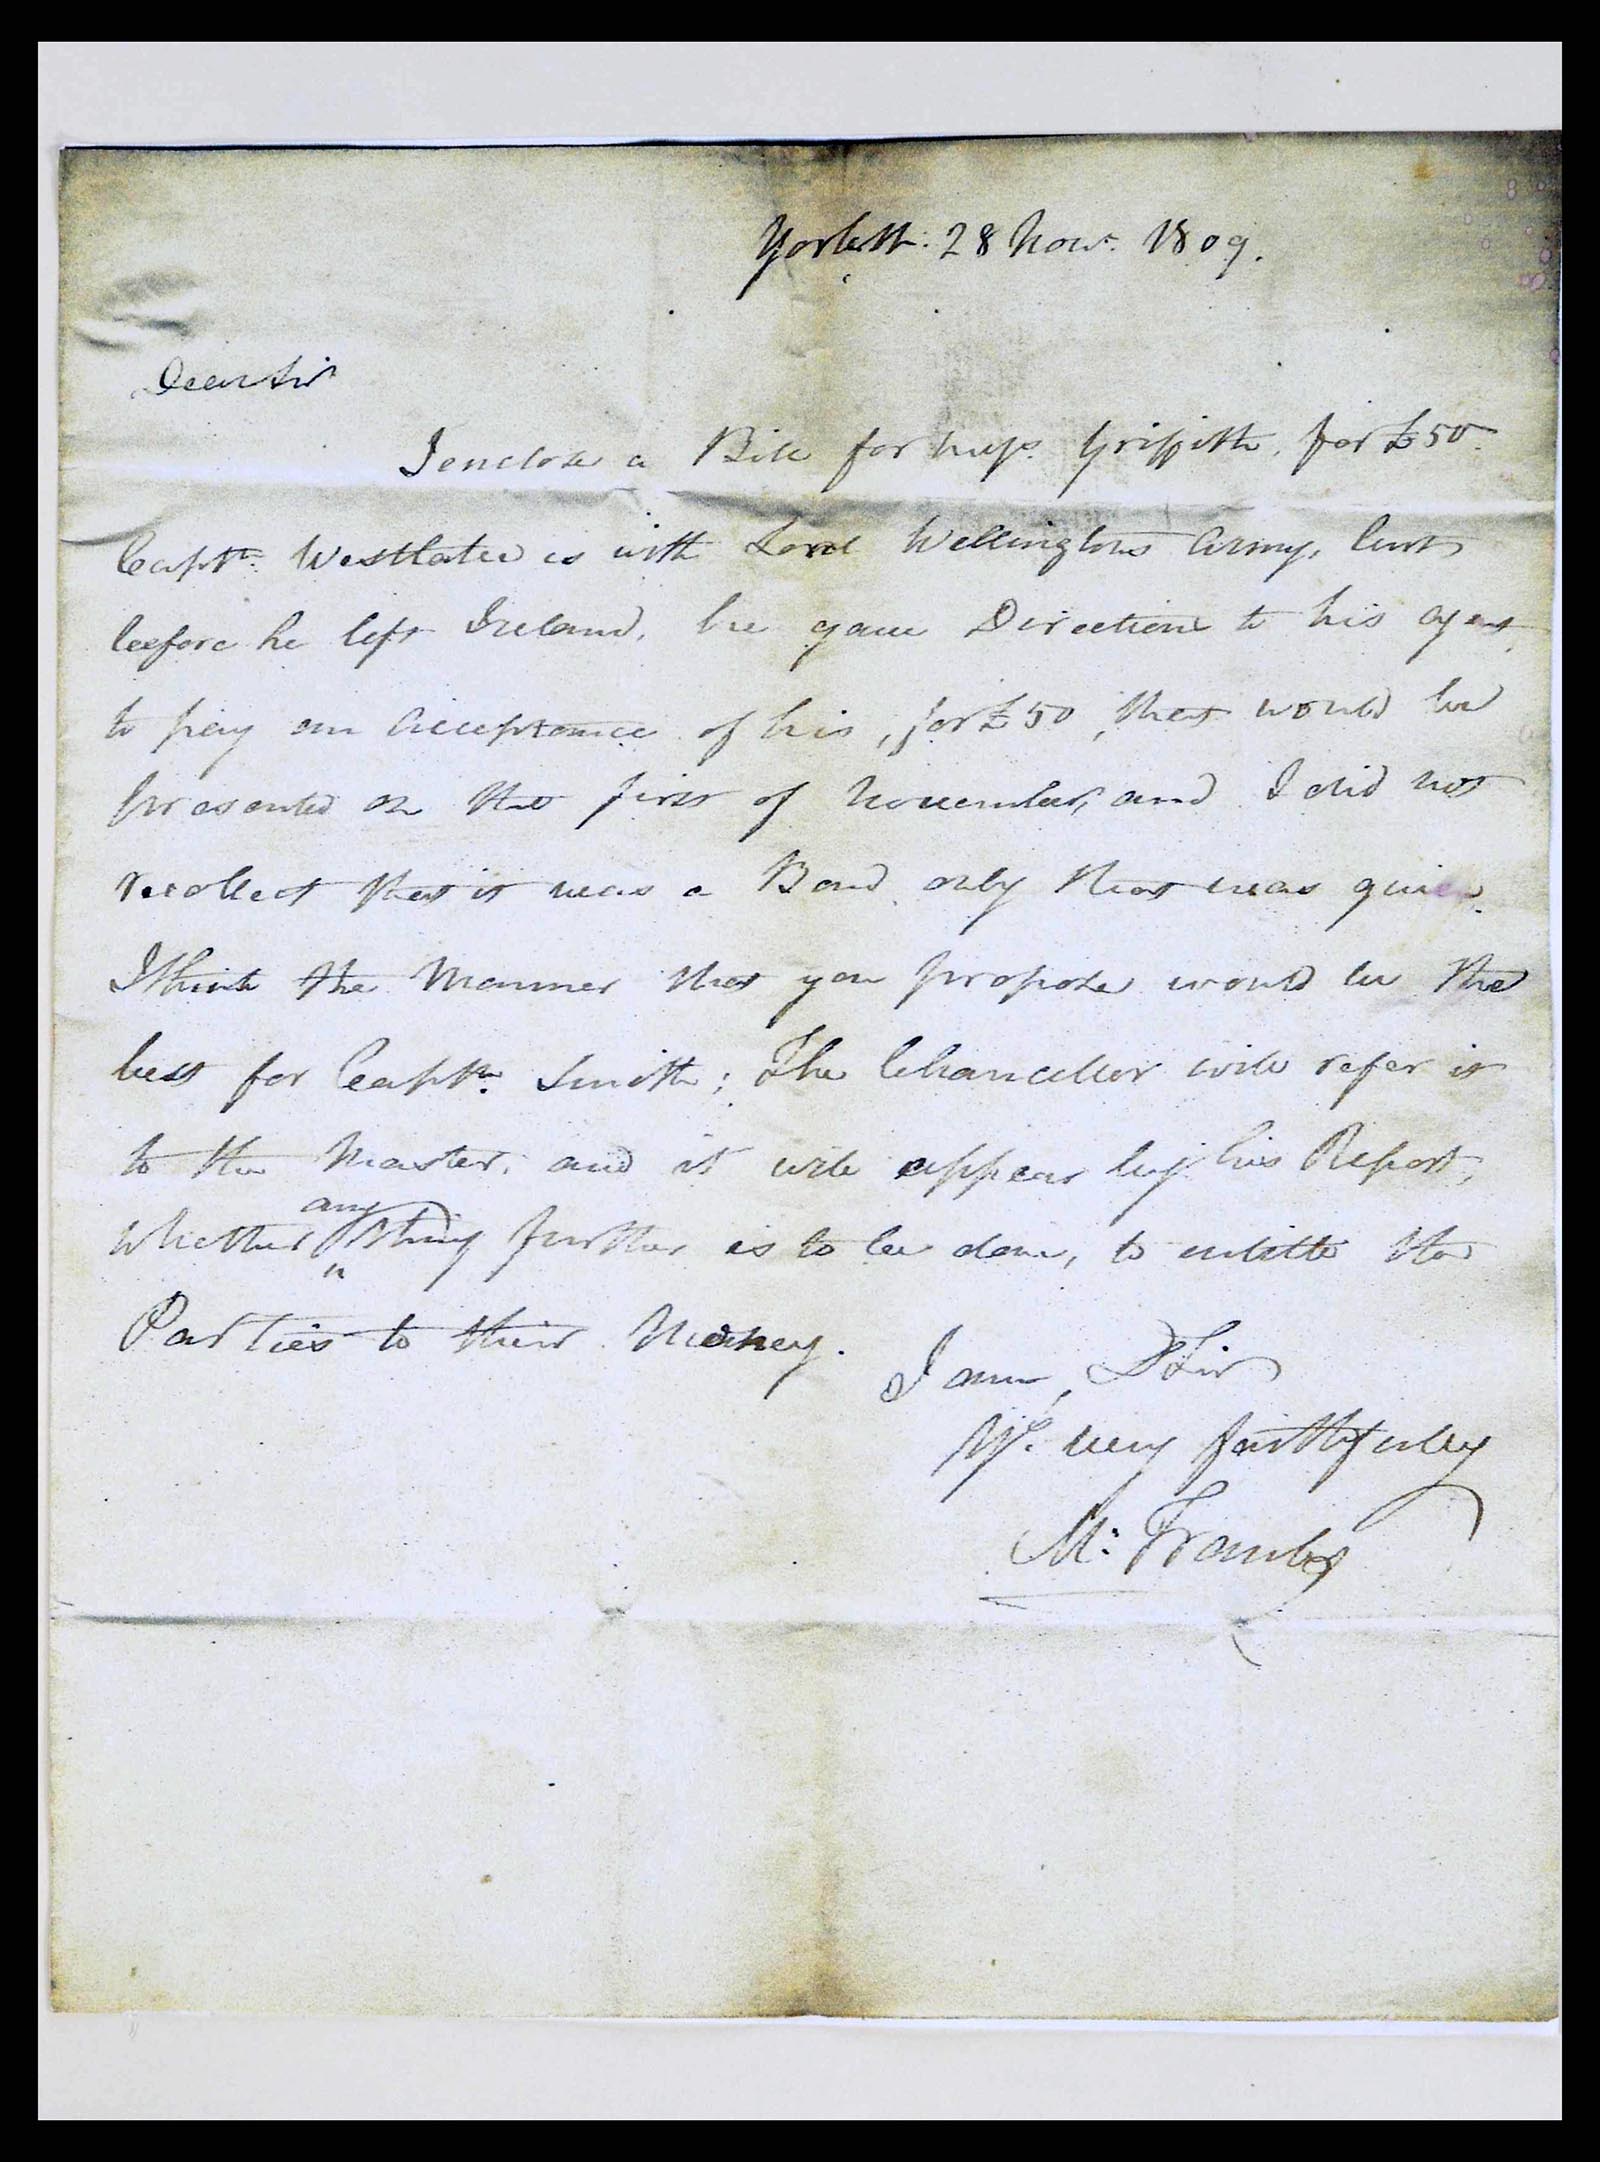 28 Novr. 1809.
Dear Sir
I enclose a Bill for Miss Griffith, for £50.
Captn. is with Lord Wellingtons Army, but
before he left Ireland, he gave Direction to his agent,
to pay an acceptance of his, for £50, that would be
presented on the first of November, and I did not
recollect that it was a Bond only that was given.
I think the Manner that you propose would be the
best for Captn. Smith; The Chancellor will refer it
to the Master, and it will appear by his Report,
whether any thing further is to be done, to entitle the
Parties to their Money.
I am, D Sir
Yrs. very faithfully
M: